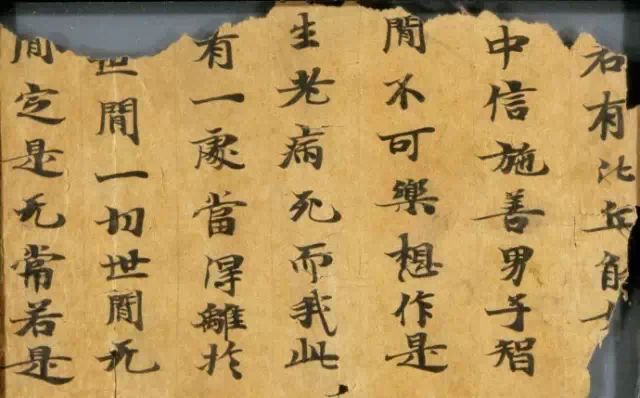 有比丘
中信施善男子智
間不可樂想作是
生老病死而我此
有一處當得離於
世間一切世間无
間定是无常若是